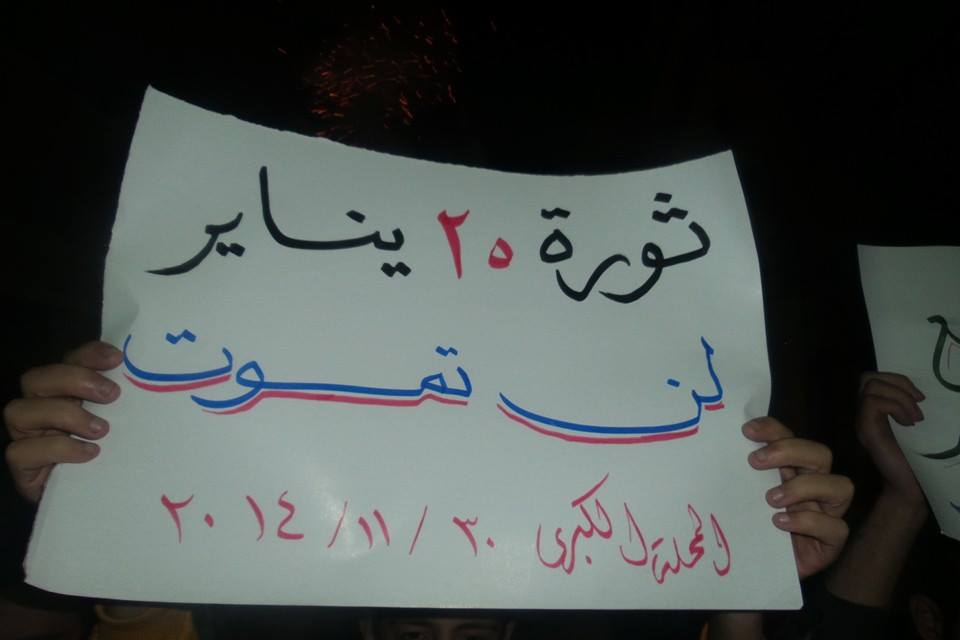 ثورة ٢٥ يناير
لن تموت
المحلة الكبرى ٣٠ / ١١ / ٢٠١٤